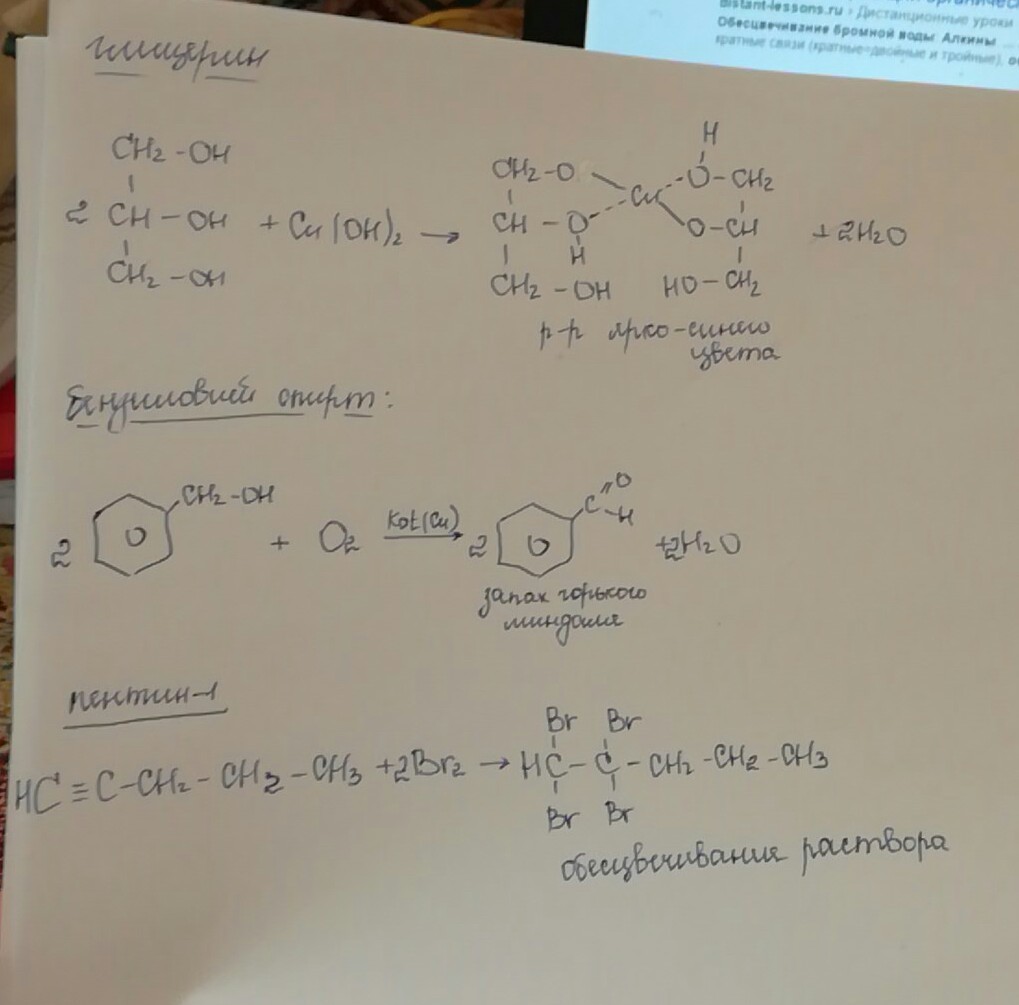 distant-lessons.ru › Дистанционные уроки
Обесцвечивание бромной воды. Алкины ...
кратные связи (кратные=двойные и тройные),
глицерин
CH₂-OH
2 CH-OH + Cu(OH)₂ →
CH₂-OH
H
CH₂-O Cu O-CH₂
CH-O O-CH + 2H₂O
H
CH₂-OH HO-CH₂
р-р ярко-синего
цвета
бензиловый спирт:
2 CH₂-OH + O₂ Kat(Cu) → 2 C=O -H +2H₂O
запах горького
миндаля
пентин-1
Br Br
HC≡C-CH₂-CH₂-CH₃ +2Br₂ → HC-C-CH₂-CH₂-CH₃
Br Br
обесцвечивания раствора